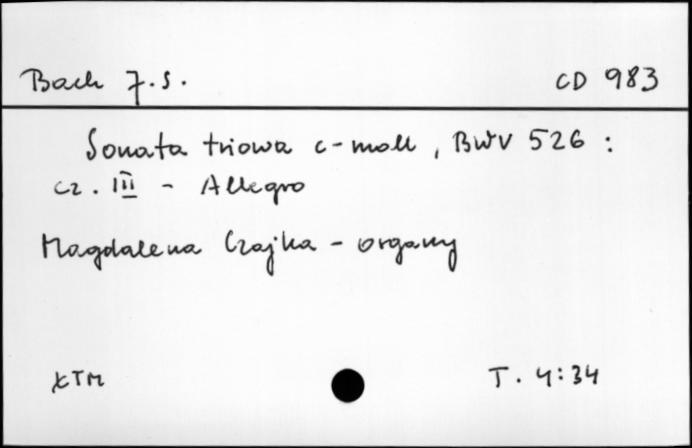 Bach J.S. CD 983
Sonata triowa c-moll, BWV 526:
cz. III - Allegro
Magdalena Czajka - organy
ŁTM T. 4:34